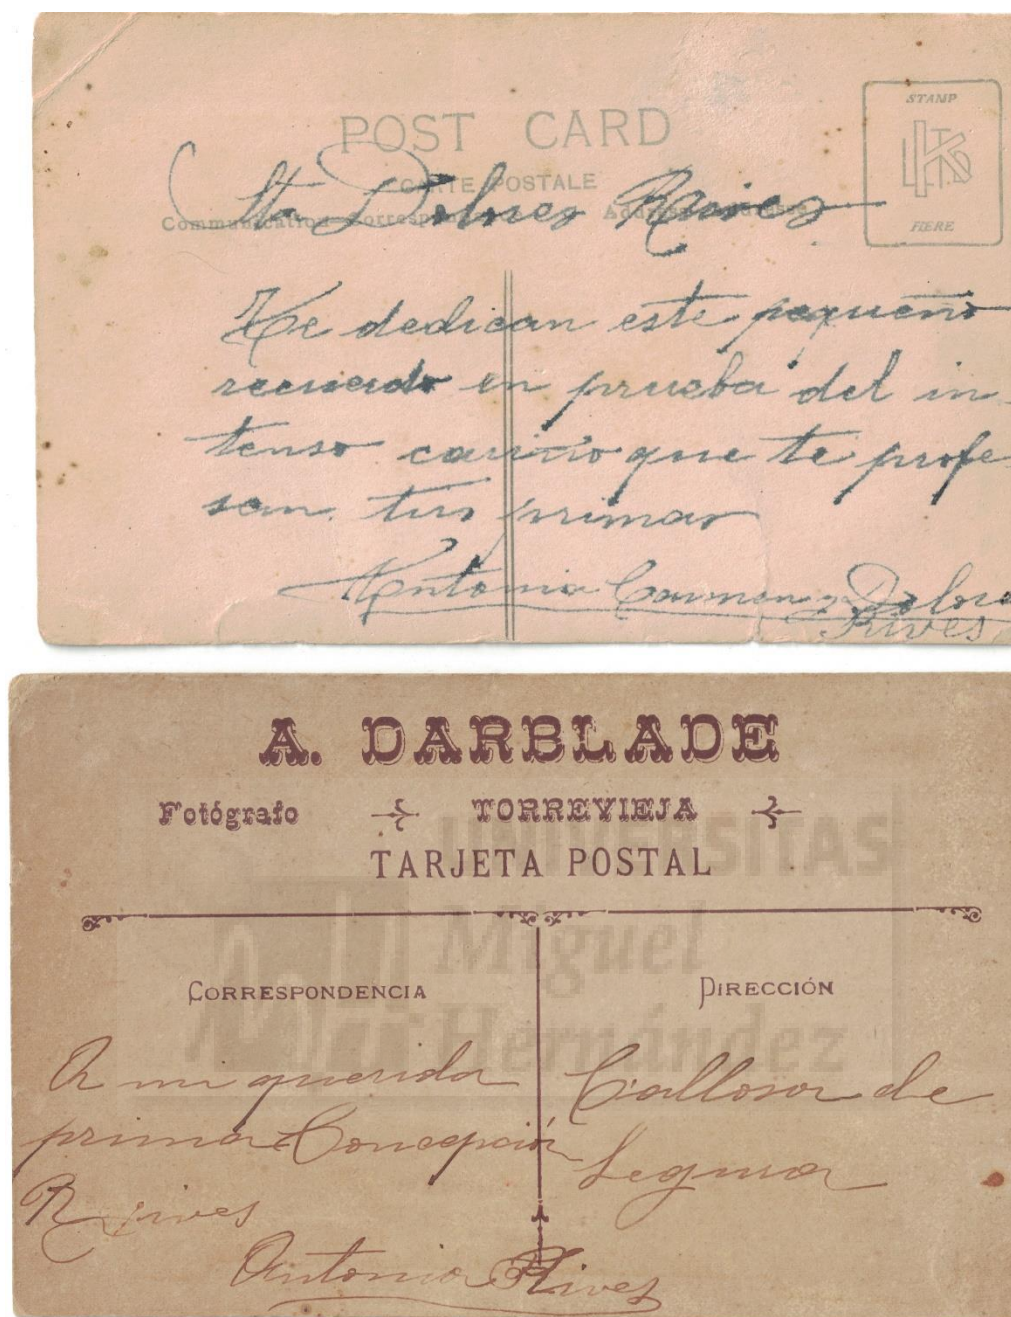 POST CARD
CARTE POSTALE
Communication Correspondance Address Adresse
STAMP
LTD
HERE
Sta Dolores Rives
Te dedican este pequeño
recuerdo en prueba del in-
tenso cariño que te profe-
san tus primas
Antonia Carmen y Dolores
Rives
A. DARBLADE
Fotógrafo TORREVIEJA
TARJETA POSTAL
UNIVERSITAS
Miguel
Hernández
CORRESPONDENCIA DIRECCIÓN
A mi querida
prima Concepción
Rives
Antonia Rives
Callosa de
Segura